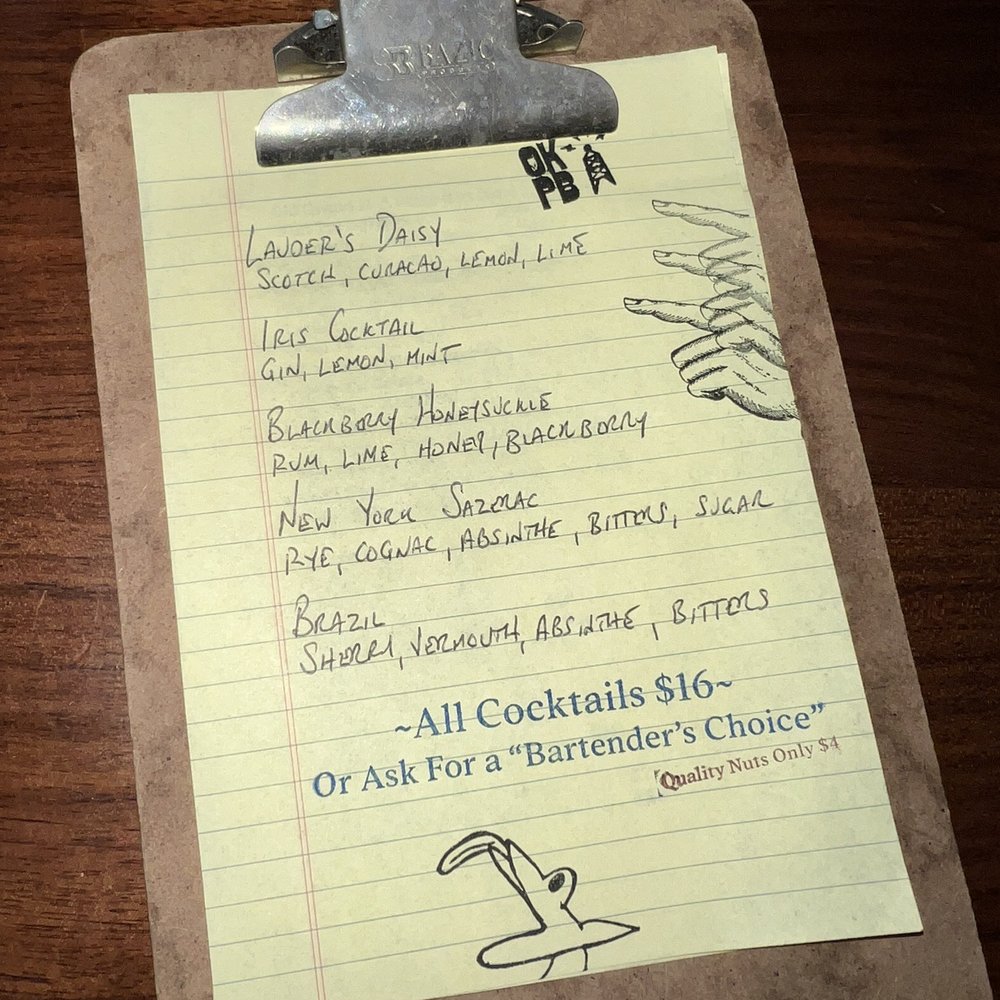 BAZIC
PRODUCTS
OK
PB
LAUDER'S DAISY
SCOTCH, CURACAO, LEMON, LIME
IRIS COCKTAIL
GIN, LEMON, MINT
BLACKBERRY HONEYSUCKLE
RUM, LIME, HONEY, BLACKBERRY
NEW YORK SAZERAC
RYE, COGNAC, ABSINTHE, BITTERS, SUGAR
BRAZIL
SHERRY, VERMOUTH, ABSINTHE, BITTERS
~All Cocktails $16~
Or Ask For a “Bartender's Choice”
Quality Nuts Only $4